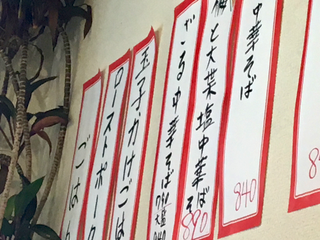 中華そば
840
梅と大葉塩中華そば
890
ざる中華そば
玉子かけごは
ローストポーク
ごはん